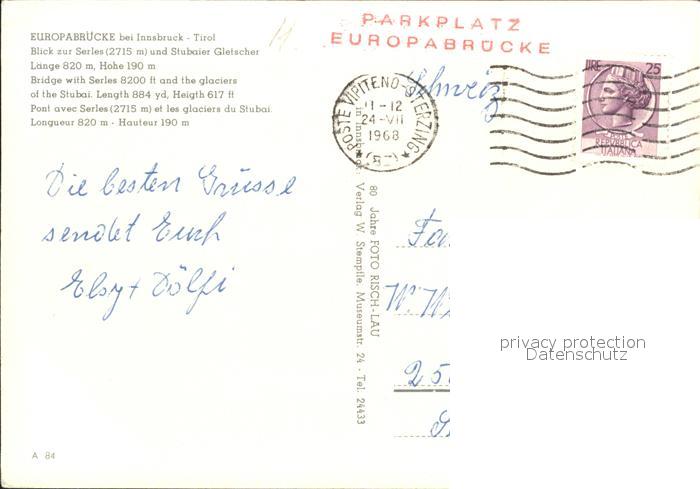 EUROPABRÜCKE bei Innsbruck - Tirol
Blick zur Serles (2715 m) und Stubaier Gletscher
Länge 820 m, Hohe 190 m
Bridge with Serles 8200 ft and the glaciers
of the Stubai. Length 884 yd, Heigth 617 ft
Pont avec Serles (2715 m) et les glaciers du Stubai.
Longueur 820 m - Hauteur 190 m
PARKPLATZ
EUROPABRÜCKE
POSTE VIPITENO-STERZING
11-12
24-VII
1968
(BZ)
Schweiz
LIRE 25
POSTE
REPVBBLICA
ITALIANA
Die besten Grüsse
sendet Euch
Elsy + Dölfi
80 Jahre FOTO RISCH-LAU
in Innsbruck: Verlag W. Stempfle, Museumstr. 24 - Tel. 24433
Fa
W. W
25
privacy protection
Datenschutz
A 84